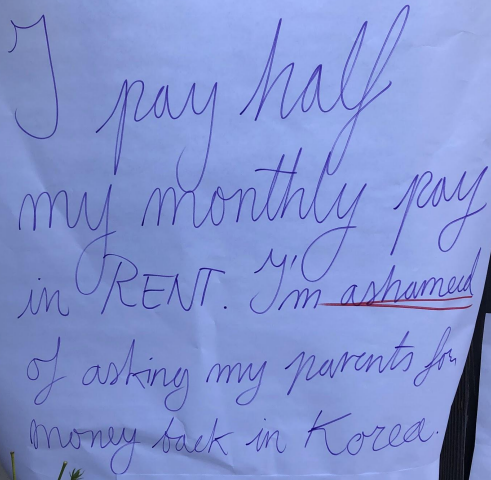 I pay half
my monthly pay
in RENT. I'm ashamed
of asking my parents for
money back in Korea.